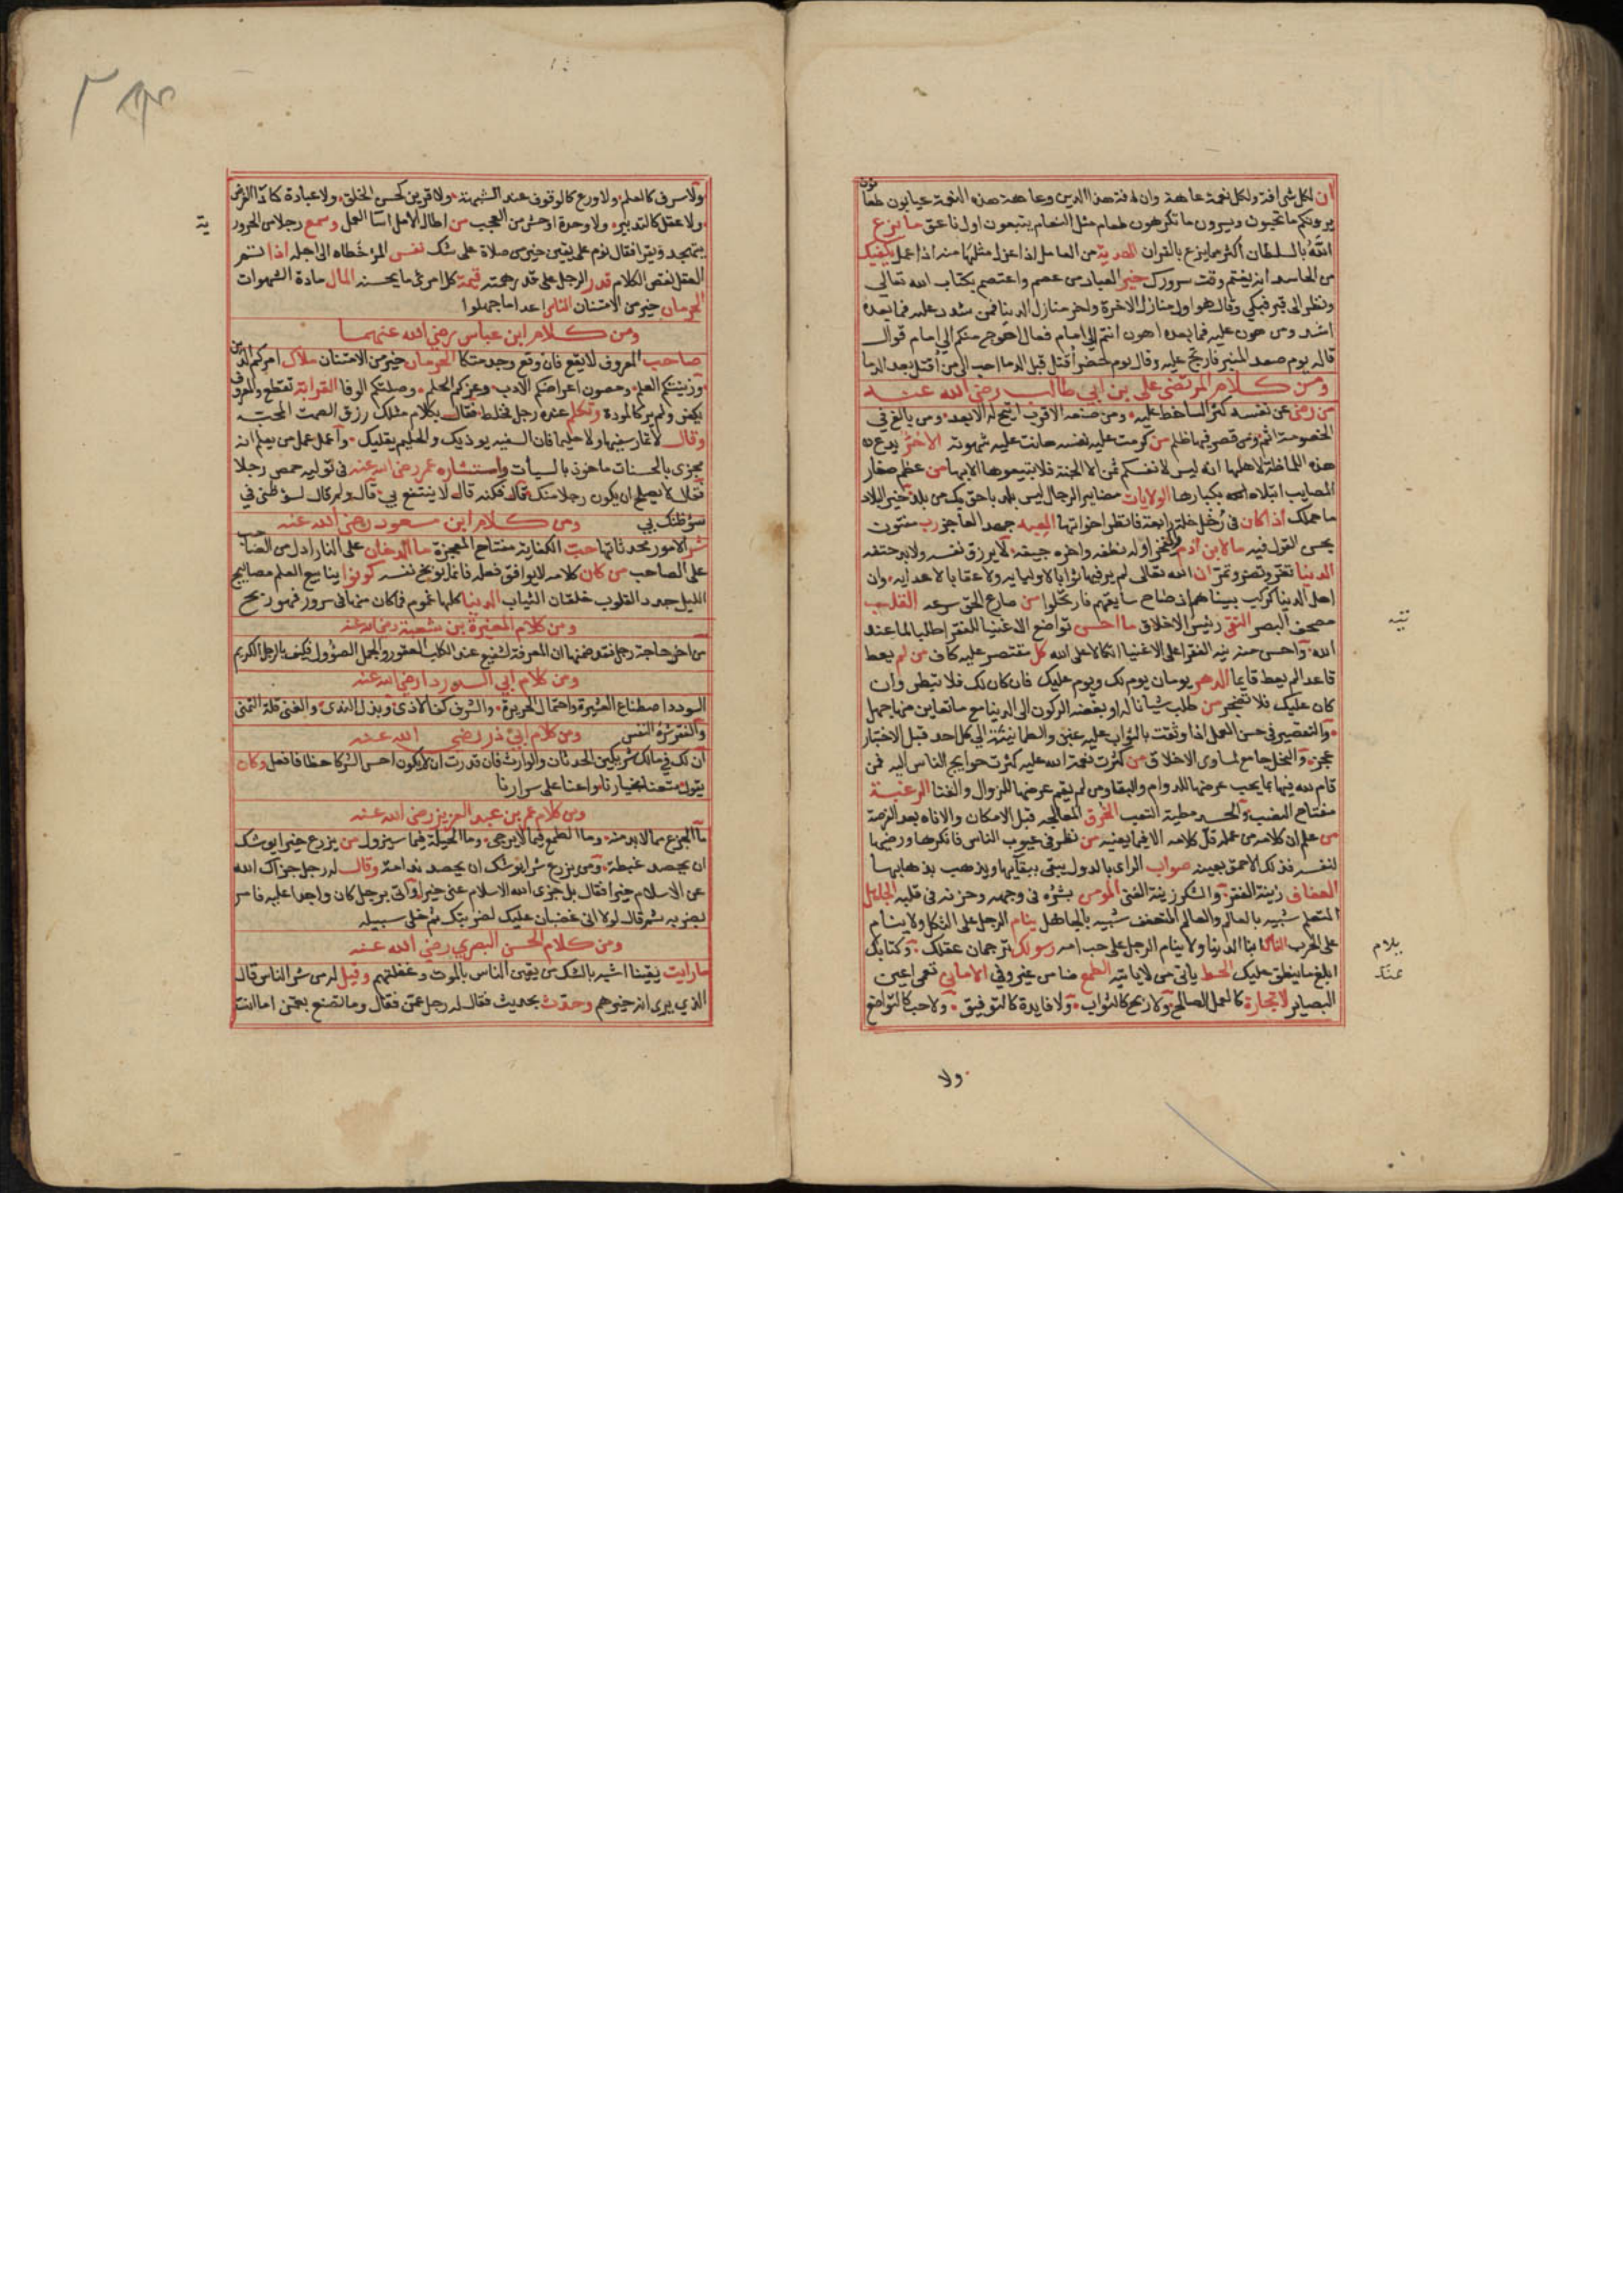 ان لكل شي افة ولكل نعمة عاهة وان افة هذا الدين وعاهة هذه النعمة عيابون طعانون
يرونكم ما تحبون ويسرون ما تكرهون طغام مثل النعام يتبعون اول ناعق ما يزع
الله بالسلطان اكثر مما يزع بالقران الهدية من العامل اذا عزل مثلها منه اذا عمل يكفيك
من الحاسد انه يغتم وقت سرورك خير العباد من عصم واعتصم بكتاب الله تعالى
ونظر الى قبر فبكى وقال هو اول منازل الاخرة واخر منازل الدنيا فمن شدد عليه فما بعده
اشد ومن هون عليه فما بعده اهون انتم الى امام فعال احوج منكم الى امام قوال
قاله يوم صعد المنبر فارتج عليه وقال يوم حضر اقتل قبل الدما احب الي من اقتل بعد الدما
ومن كلام المرتضى علي بن ابي طالب رضي الله عنه
من رضي عن نفسه كثر الساخط عليه ومن ضيعه الاقرب اتيح له الابعد ومن بالغ في
الخصومة اثم ومن قصر فيها ظلم من كرمت عليه نفسه هانت عليه شهوته الا حر يدع
هذه اللماظة لاهلها انه ليس لانفسكم ثمن الا الجنة فلا تبيعوها الا بها من عظم صغار
المصايب ابتلاه الله بكبارها الولايات مضامير الرجال ليس بلد باحق بك من بلد خير البلاد
ما حملك اذا كان في رجل خلة رايعة فانتظر اخواتها الغيبه جهد العاجز رب مفتون
بحسن القول فيه ما لابن ادم والفخر اوله نطفه واخره جيفه لا يرزق نفسه ولا يدفع حتفه
الدنيا تغر وتضر وتمر ان الله تعالى لم يرضها ثوابا لاوليايه ولا عقابا لاعدايه وان
اهل الدنيا كركب بيناهم اذ صاح سايقهم فارتحلوا من صارع الحق صرعه القلب
مصحف البصر التقى رئيس الاخلاق ما احسن تواضع الاغنيا للفقرا طلبا لما عند
الله واحسن منه تيه الفقرا على الاغنيا اتكالا على الله كل مقتصر عليه كاف من لم يعط
قاعدا لم يعط قايما الدهر يومان يوم لك ويوم عليك فان كان لك فلا تبطر وان
كان عليك فلا تضجر من طلب شيا ناله او بعضه الركون الى الدنيا مع ما تعاين منها جهل
والتقصير في حسن العمل اذا وثقت بالثواب عليه غبن والطمانينة الى كل احد قبل الاختبار
عجز والبخل جامع لمساوي الاخلاق من كثرت نعمة الله عليه كثرت حوايج الناس اليه فمن
قام لله فيها بما يجب عرضها للدوام والبقا ومن لم يقم عرضها للزوال والفنا الرغبة
مفتاح النصب والحسد مطية التعب الخرق المعالجه قبل الامكان والاناه بعد الفرصة
من علم ان كلامه من عمله قل كلامه الا فيما يعنيه من نظر في عيوب الناس فانكرها ورضيها
لنفسه فذلك الاحمق بعينه صواب الراي بالدول يبقى ببقايها ويذهب بذهابها
العفاف زينة الفقر والشكر زينة الغنى المومن بشره في وجهه وحزنه في قلبه الجاهل
المتعلم شبيه بالعالم والعالم المتعسف شبيه بالجاهل ينام الرجل على الثكل ولا ينام
على الحرب الناس ابنا الدنيا ولا يلام الرجل على حب امه رسولك ترجمان عقلك وكتابك
ابلغ ما ينطق عليك الحظ ياتي من لا ياتيه الطمع ضامن غير وفي الاماني تعمي اعين
البصاير لا تجارة كالعمل الصالح ولا ربح كالثواب ولا فايدة كالتوفيق ولا حسب كالتواضع
ولا
ولا شرف كالعلم ولا ورع كالوقوف عند الشبهة ولا قرين كحسن الخلق ولا عبادة كاداء الفرض
ولا عقل كالتدبير ولا وحدة اوحش من العجب من اطال الامل اسا العمل وسمع رجلا من الحرور
ية
يتهجد ويقرا فقال نوم على يقين خير من صلاة على شك نفس المرء خطاه الى اجله اذا تم
العقل نقص الكلام قدر الرجل على قدر همته قيمة كل امرئ ما يحسنه المال مادة الشهوات
الحرمان خير من الامتنان الناس اعداء ما جهلوا
ومن كلام ابن عباس رضي الله عنهما
صاحب المعروف لا يقع فان وقع وجد متكا الحرمان خير من الامتنان ملاك امركم الدين
وزينتكم العلم وحصون اعراضكم الادب وعزكم الحلم وصلتكم الوفا القرابة تقطع والمعروف
يكفر ولم ير كالمودة وتكلم عنده رجل فخلط فقال بكلام مثلك رزق الصمت المحبة
وقال لا تمار سفيها ولا حليما فان السفيه يوذيك والحليم يقليك واعمل عمل من يعلم انه
مجزى بالحسنات ماخوذ بالسيأت واستشاره عمر رضي الله عنه في توليه حمص رجلا
فقال لا يصلح ان يكون رجلا منك قال فكنه قال لا ينتفع بي قال ولم قال لسوء ظني في
سوء ظنك بي
ومن كلام ابن مسعود رضي الله عنه
شر الامور محدثاتها حب الكفاية مفتاح المعجزة ما الدخان على النار ادل من الصاحب
على الصاحب من كان كلامه لا يوافق فعله فانما يوبخ نفسه كونوا ينابيع العلم مصابيح
الليل جدد القلوب خلقان الثياب الدنيا كلها غموم فما كان منها في سرور فهو ربح
ومن كلام المغيرة بن شعبة رضي الله عنه
من اخر حاجة رجل فقد ضمنها ان المعرفة لتنفع عند الكلب العقور والجمل الصؤول فكيف بالرجل الكريم
ومن كلام ابي الدردا رضي الله عنه
السودد اصطناع العشيرة واحتمال الجريرة والشرف كف الاذى وبذل الندى والغنى قلة التمني
والفقر شره النفس
ومن كلام ابي ذر رضي الله عنه
ان لك في مالك شريكين الحدثان والوارث فان قدرت ان لا يكون احسن الشركا حظا فافعل وكان
يقول متعنا بخيارنا واعنا على شرارنا
ومن كلام عمر بن عبد العزيز رضي الله عنه
ما الجزع مما لا بد منه وما الطمع فيما لا يرجى وما الحيلة فيما سيزول من يزرع خيرا يوشك
ان يحصد غبطة ومن يزرع شرا يوشك ان يحصد ندامة وقال له رجل جزاك الله
عن الاسلام خيرا فقال بل جزى الله الاسلام عني خيرا واتى برجل كان واجدا عليه فامر
بضربه ثم قال لولا اني غضبان عليك لضربتك ثم خلى سبيله
ومن كلام الحسن البصري رضي الله عنه
ما رايت يقينا اشبه بالشك من يقين الناس بالموت وغفلتهم وقيل له من شر الناس قال
الذي يرى انه خيرهم وحدث بحديث فقال له رجل عمن فقال وما تصنع بعمن اما انت